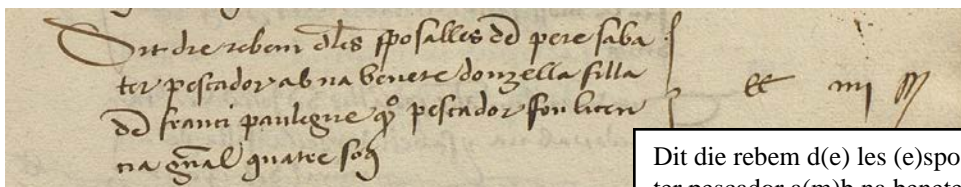 Dit die rebem d les sposalles de pere saba
ter pescador ab na benete donzella filla
de franci paulegre qo pescador fou licen
cia gnal quatre sos
ll iiij s
Dit die rebem d(e) les (e)spo
ter pescador a(m)b na benete